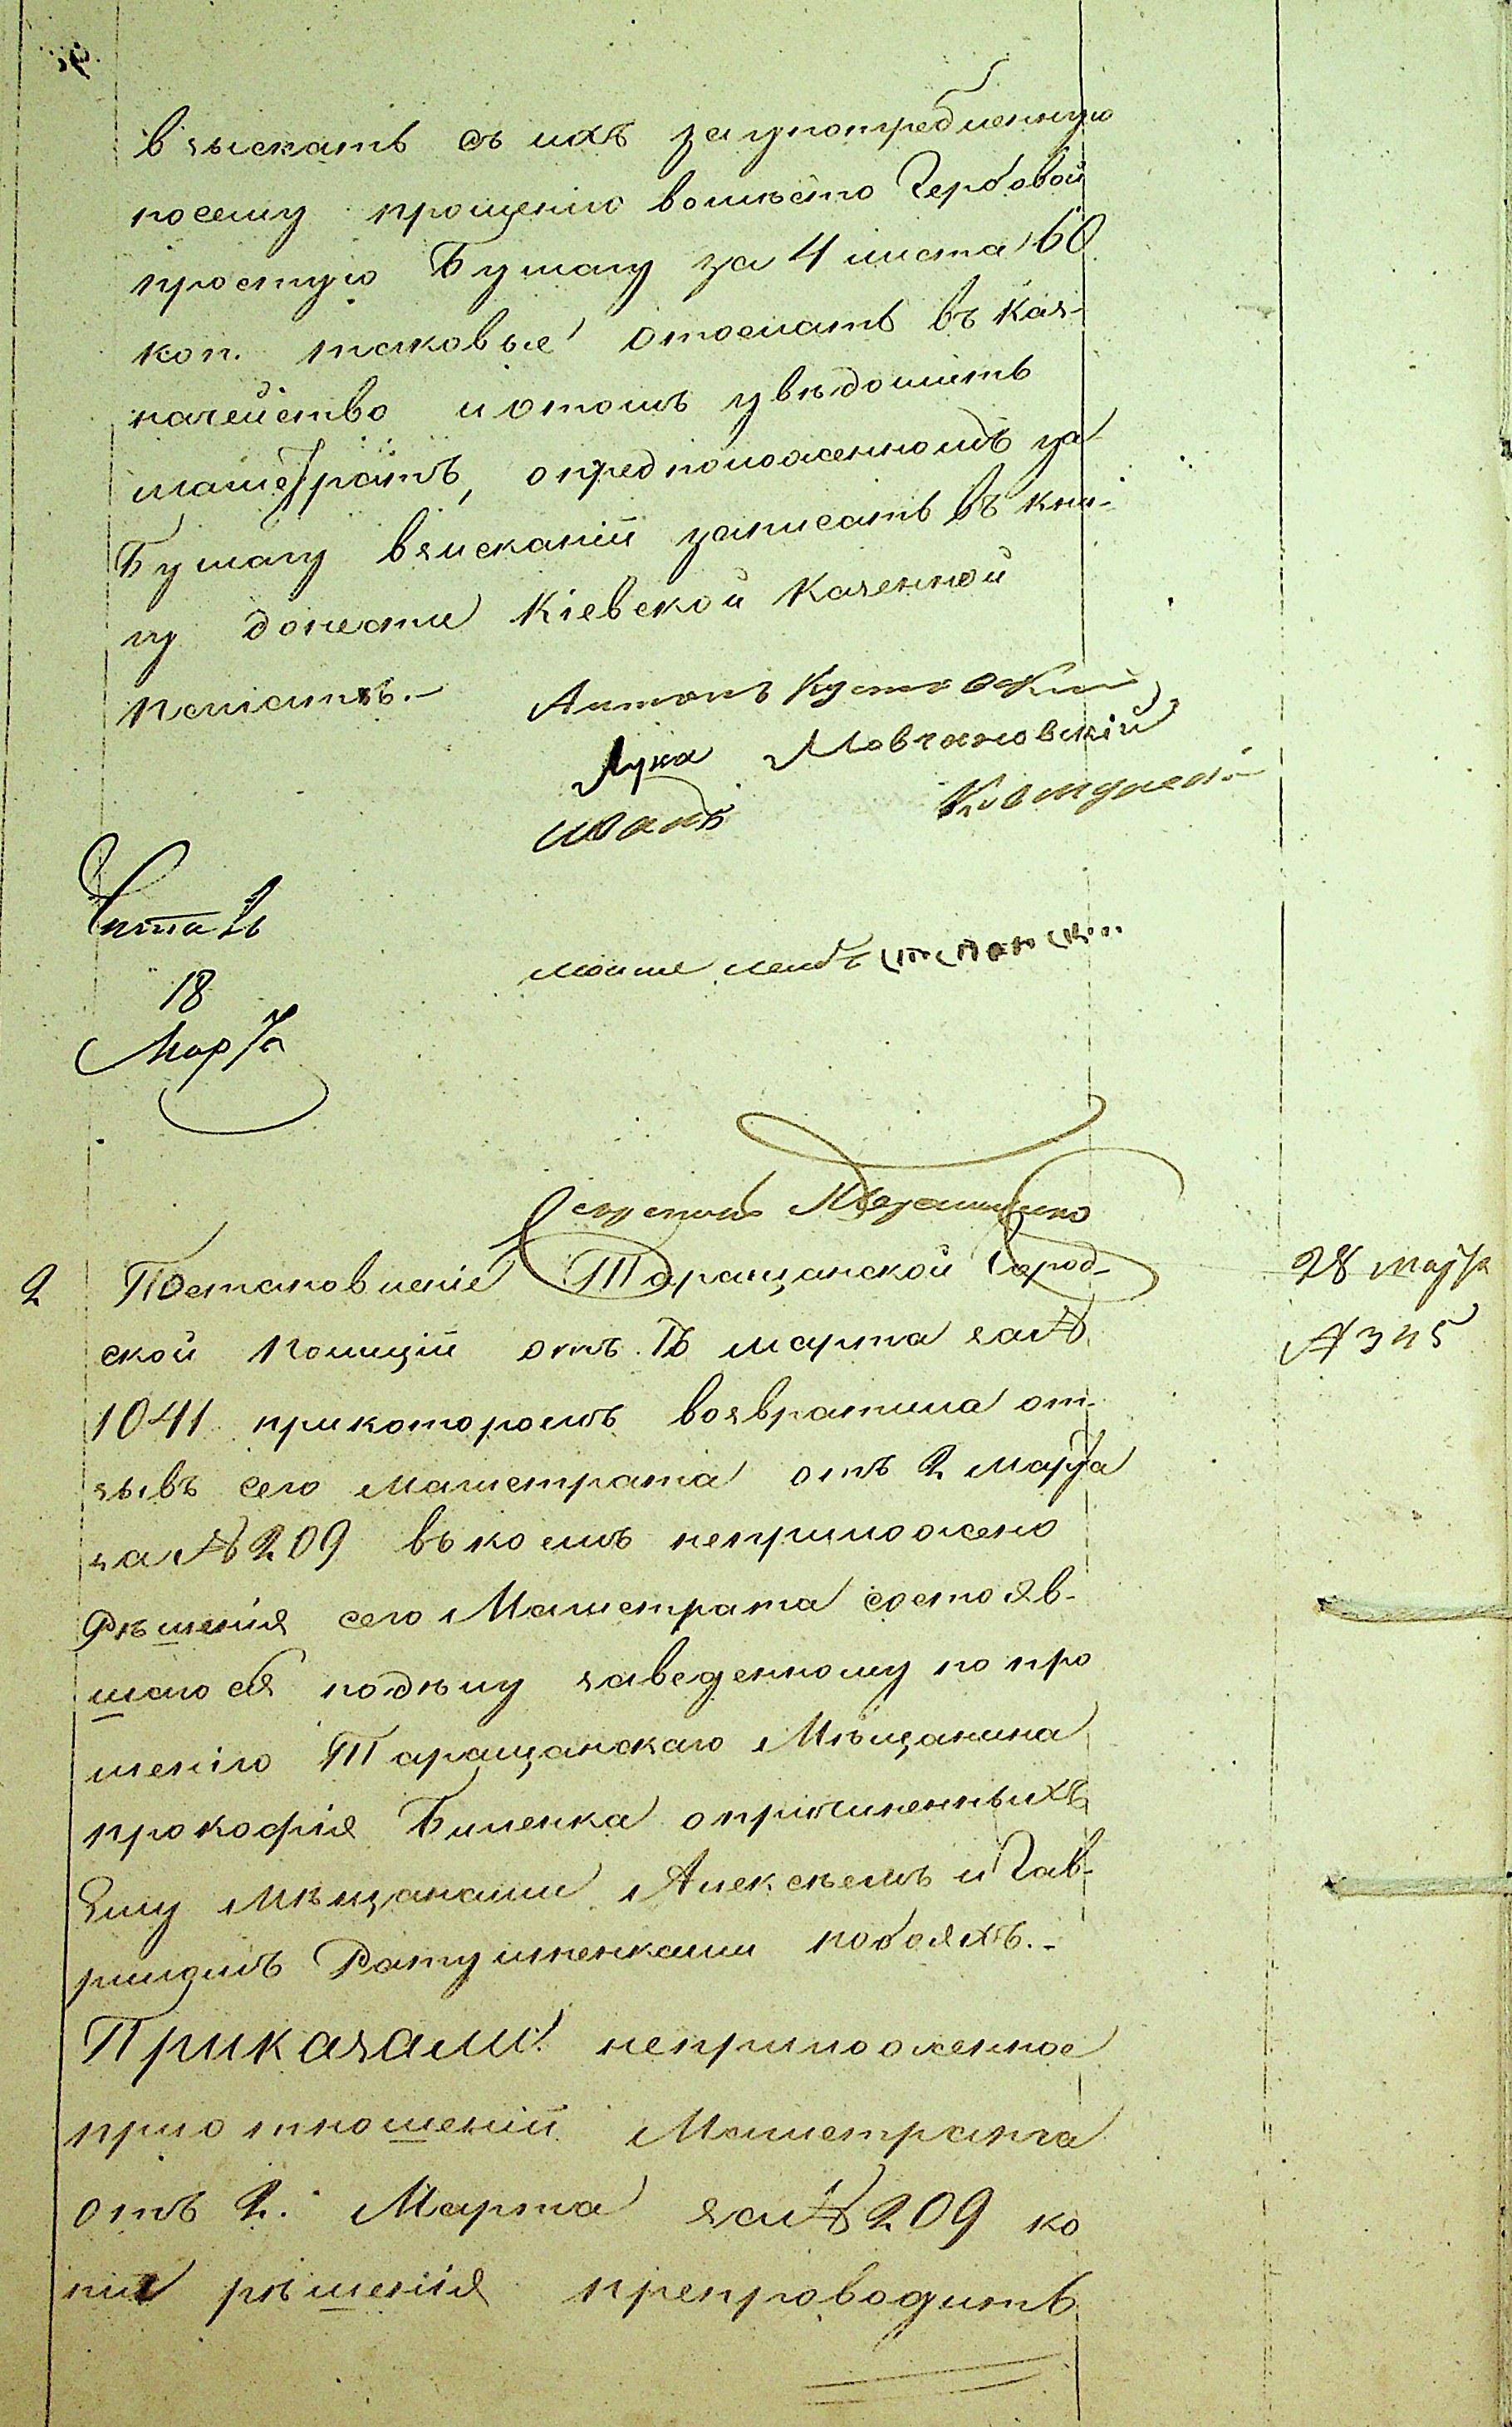 взыскать съ ихъ заупотребленную
посему прошенію вомѣсто Гербовой
простую Бумагу за 4 листа 60
коп. таковые отослать въ Каз-
начейство иотомъ увѣдомить
магистратъ, опредположенномъ за
Бумагу взысканіи записать въ кни-
гу донести Кіевской Казенной
палатѣ.-
Антонъ
Лука Мовчановскій
Иванъ
Читалъ
18
Марта
2 Постановленіе Таращанской Город-
28 марта
ской полиціи отъ марта за №
№ 345
1041 прикоторомъ возвратила от-
зывъ сего магистрата отъ 2 марта
за № 209 въкоемъ неприложено
Рѣшенія сего Магистрата состояв-
шагося подѣлу заведенному по про
шенію Таращанскаго Мѣщанина
прокофія Биленка опричиненныхъ
Ему мѣщанами Алексѣемъ и Гав-
риломъ Ратушненками побояхъ.-
Приказали: неприложенное
приотношеніи Магистрата
отъ 2. Марта за № 209 ко
піи рѣшенія препроводить